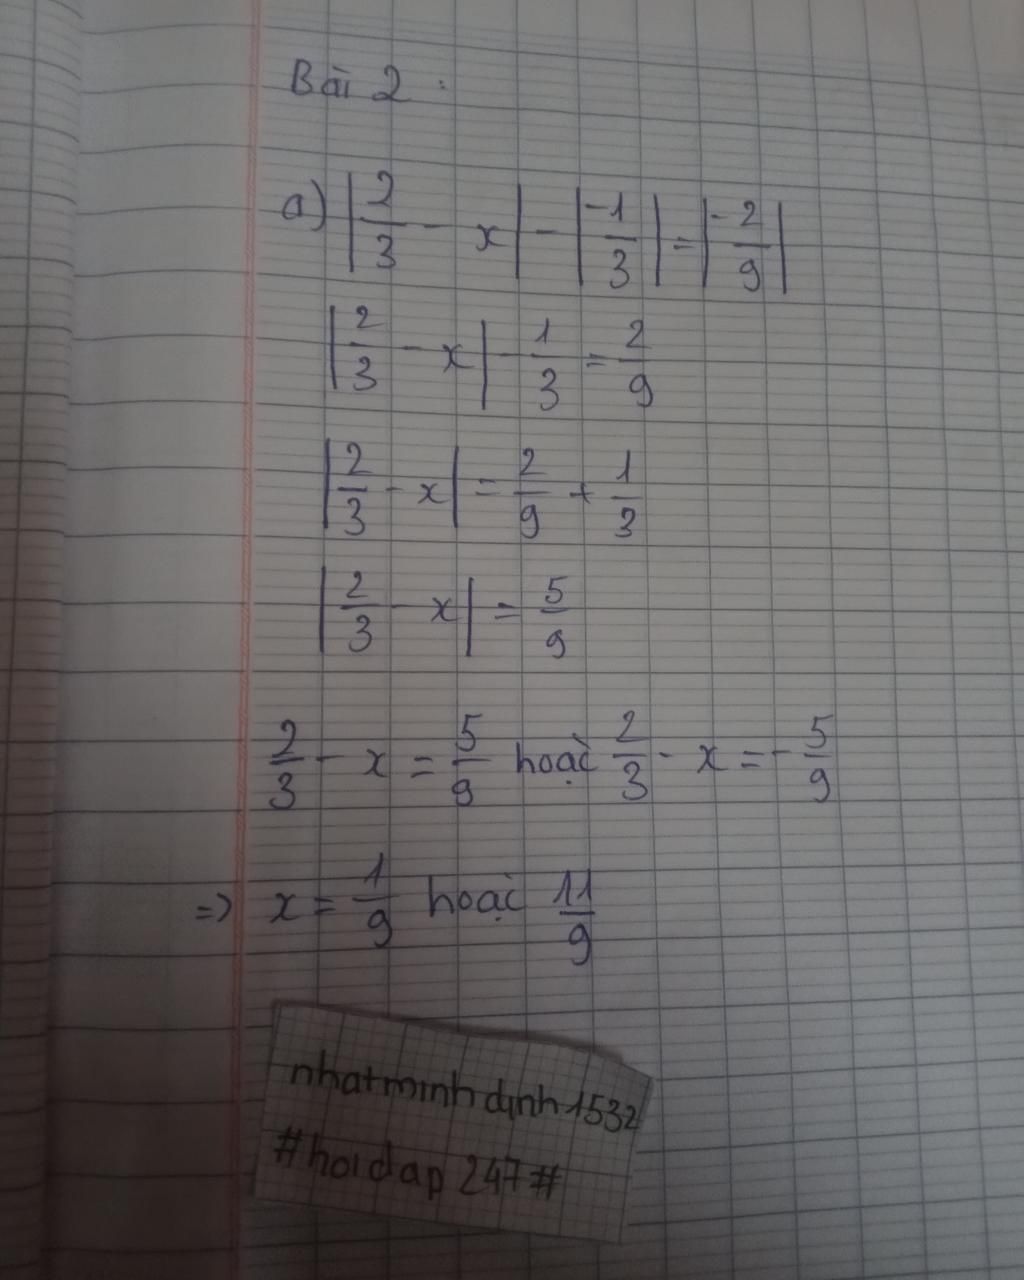 Bài 2 :
a) |2/3 - x| - |-1/3| = |-2/9|
|2/3 - x| - 1/3 = 2/9
|2/3 - x| = 2/9 + 1/3
|2/3 - x| = 5/9
2/3 - x = 5/9 hoặc 2/3 - x = - 5/9
=> x = 1/9 hoặc 11/9
nhatminhdinh1532
#hoidap247#